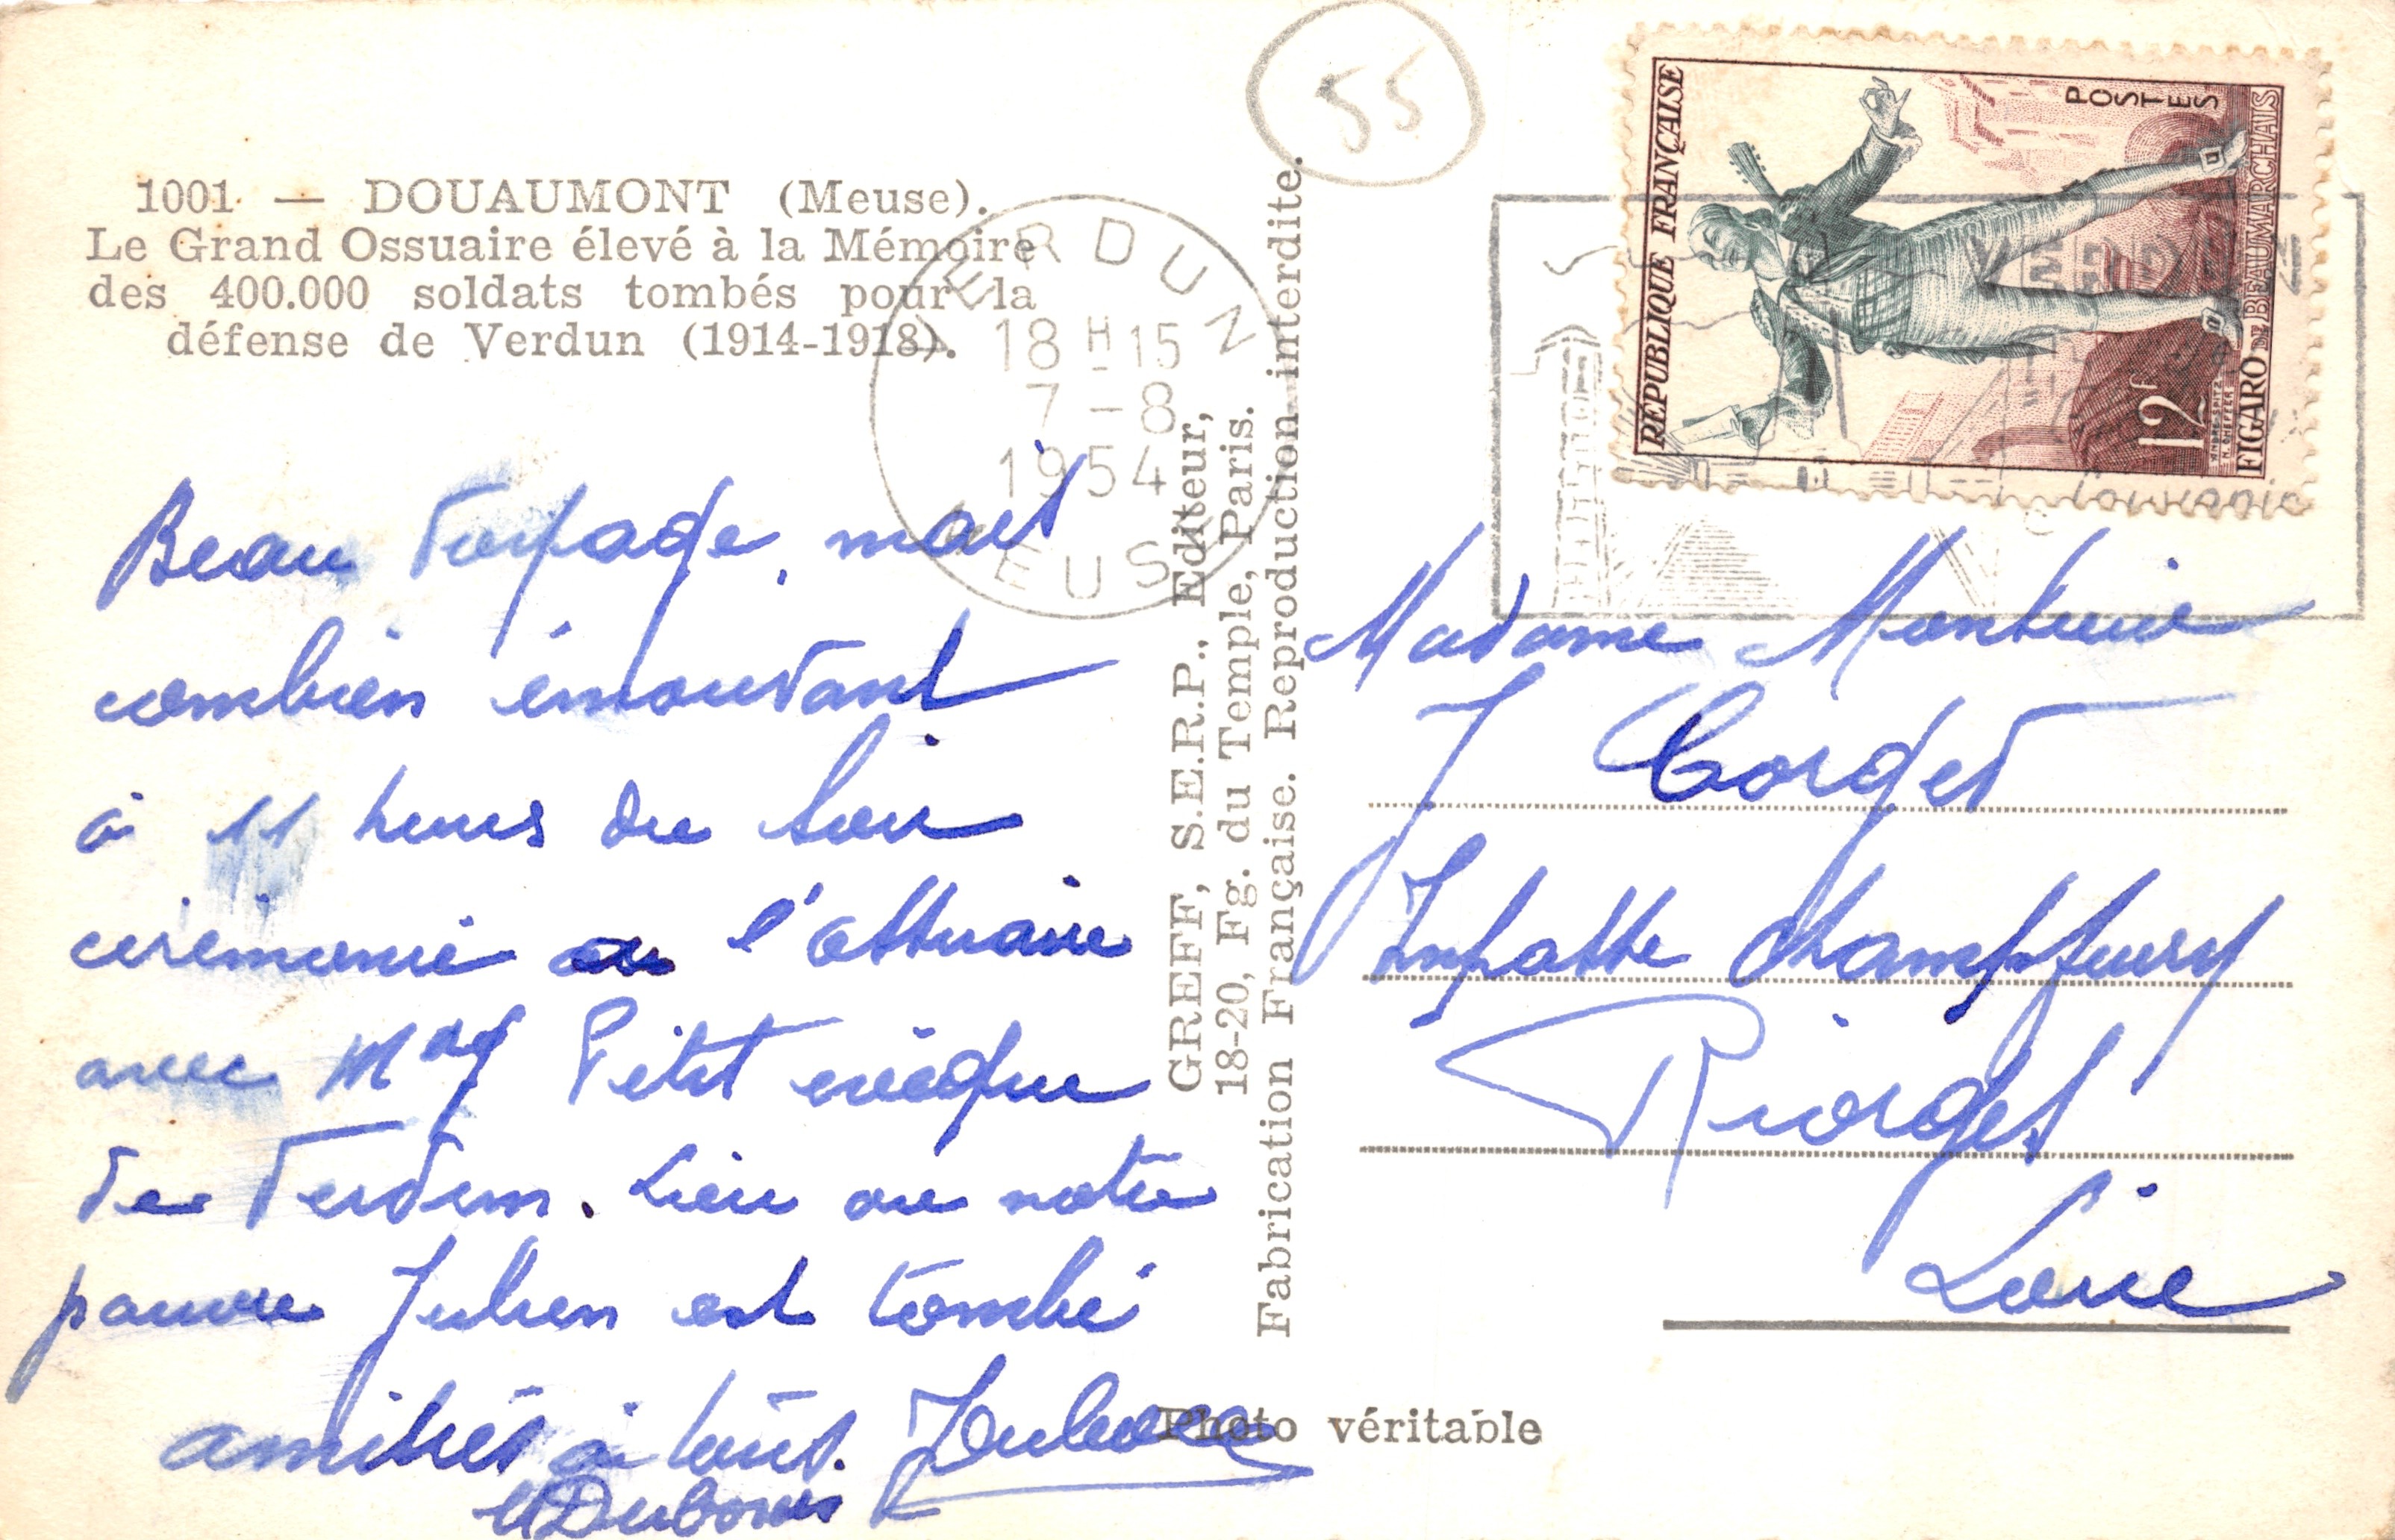 1001 — DOUAUMONT (Meuse).
Le Grand Ossuaire élevé à la Mémoire
des 400.000 soldats tombés pour la
défense de Verdun (1914-1918).
VERDUN
18 H 15
7 - 8
1954
MEUSE
55
RÉPUBLIQUE FRANÇAISE
POSTES
12f
FIGARO DE BEAUMARCHAIS
VERDUN
Beau voyage, mais
combien émouvant
à 11 heures du soir
cérémonie à l'ossuaire
avec Mgr Petit évêque
de Verdun. Lieu où notre
pauvre Julien est tombé
amitiés à tous.
GREFF, S.E.R.P., Editeur,
18-20, Fg. du Temple, Paris.
Fabrication Française. Reproduction interdite.
Madame
J Corget
Impasse Champfleury
Riorges
Loire
Photo véritable